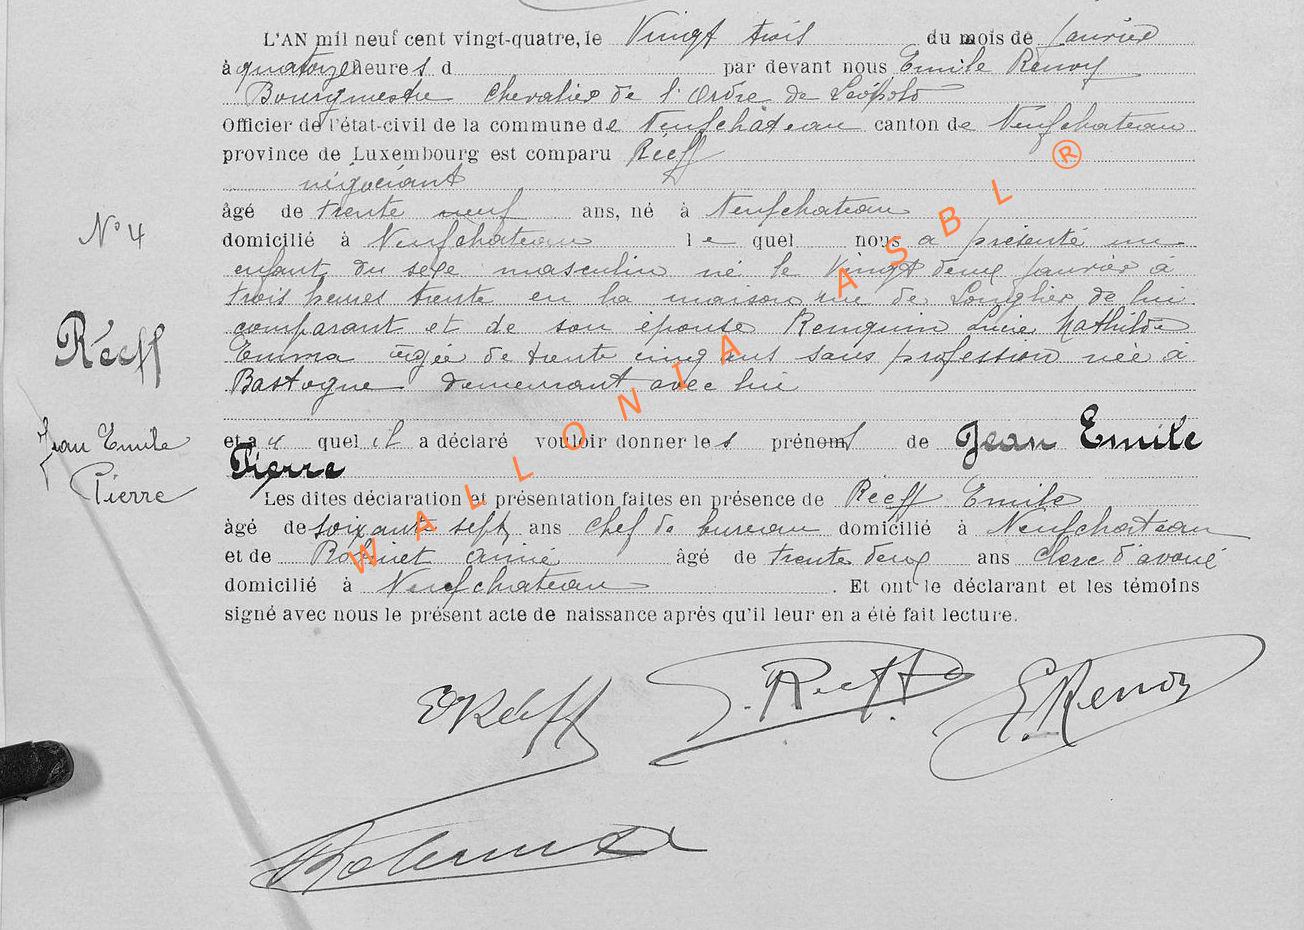 L'AN mil neuf cent vingt-quatre, le Vingt trois du mois de Janvier
à quatorze heures d par devant nous Emile Renoy
Bourgmestre Chevalier de l'Ordre de Léopold
Officier de l'état-civil de la commune de Neufchâteau canton de Neufchateau
province de Luxembourg est comparu Réeff
négociant
âgé de trente neuf ans, né à Neufchateau
N° 4
domicilié à Neufchateau le quel nous a présenté un
enfant du sexe masculin né le Vingt deux Janvier à
trois heures trente en la maison rue de Longlier de lui
comparant et de son épouse Renquin Lucie Mathilde
Réeff
Emma âgée de trente cinq ans sans profession née à
Bastogne demeurant avec lui
Jean Emile
Pierre
et a u quel il a déclaré vouloir donner les prénoms de Jean Emile
Pierre
Les dites déclaration et présentation faites en présence de Réeff Emile
âgé de soixante sept ans chef de bureau domicilié à Neufchateau
et de Robinet Aimé âgé de trente deux ans clerc d'avoué
domicilié à Neufchateau. Et ont le déclarant et les témoins
signé avec nous le présent acte de naissance après qu'il leur en a été fait lecture.
E Réeff J. Réeff E. Renoy
WALLONIA ASBL ®